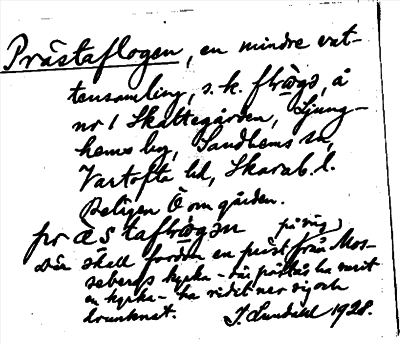 Prästaflogen, en mindre vat-
tensamling, s.k. flɷgə, å
nr 1 Skattegården, Ljung-
hems by, Sandhems sn,
Vartofta hd, Skarab. l.
Belägen Ö om gården.
præstaflɷgən
Där skall fordom en präst på väg från Mos-
sebergs kyrka - där påstås ha varit
en kyrka - ha ridit ner sig och
drunknat. J. Lundahl 1928.